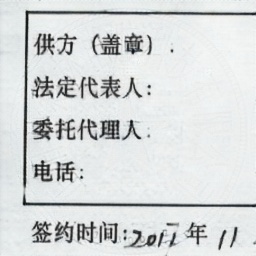 供方（盖章）.
法定代表人:
委托代理人.
电话:
签约时间:2011年11